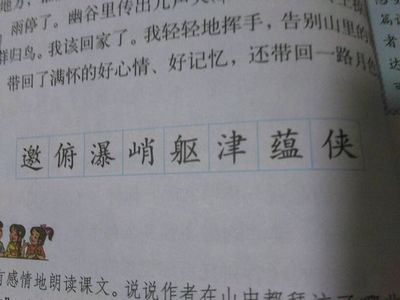 雨停了。幽谷里传出几声
群归鸟。我该回家了。我轻轻地挥手，告别山里的
带回了满怀的好心情、好记忆，还带回一路月色
邀俯瀑峭躯津蕴侠
有感情地朗读课文。说说作者在山中都拜访了